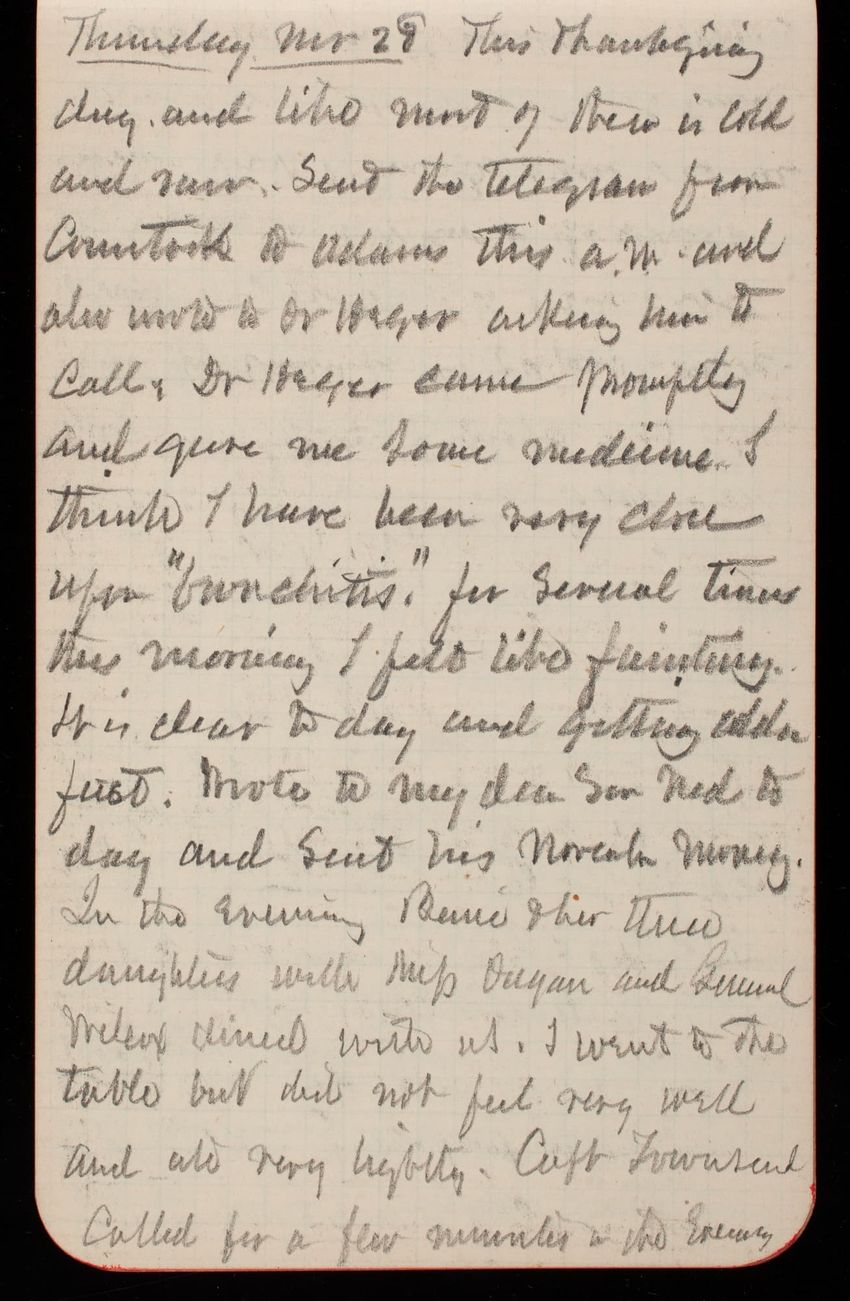 Thursday Nov 28 This thanksgiving
day. and like most of them is cold
and raw. Send the telegram from
Comstock to Adams this a.m. and
also wrote to Dr Heger asking him to
Call. Dr Heger came promptly
and gave me some medicine. I
think I have been very close
upon "bronchitis." for several times
this morning I felt like fainting.
It is clear to day and getting colder
fast. Wrote to my dear Son Ned to
day and Sent his November money.
In the Evening & her three
daughters with Miss and General
Wilcox dined with us. I went to the
table but did not feel very well
and ate very lightly. Capt Townsend
Called for a few minutes in the Evening